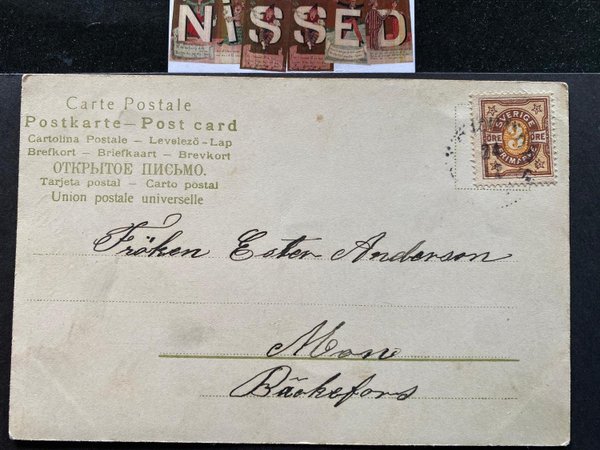 NiSSED
Carte Postale
Postkarte — Post card
Cartolina Postale — Levelező-Lap
Brefkort — Briefkaart — Brevkort
ОТКРЫТОЕ ПИСЬМО.
Tarjeta postal — Carto postal
Union postale universelle
SVERIGE
2
ÖRE ÖRE
FRIMÄRKE
Fröken Ester Anderson
Mon
Bäckefors